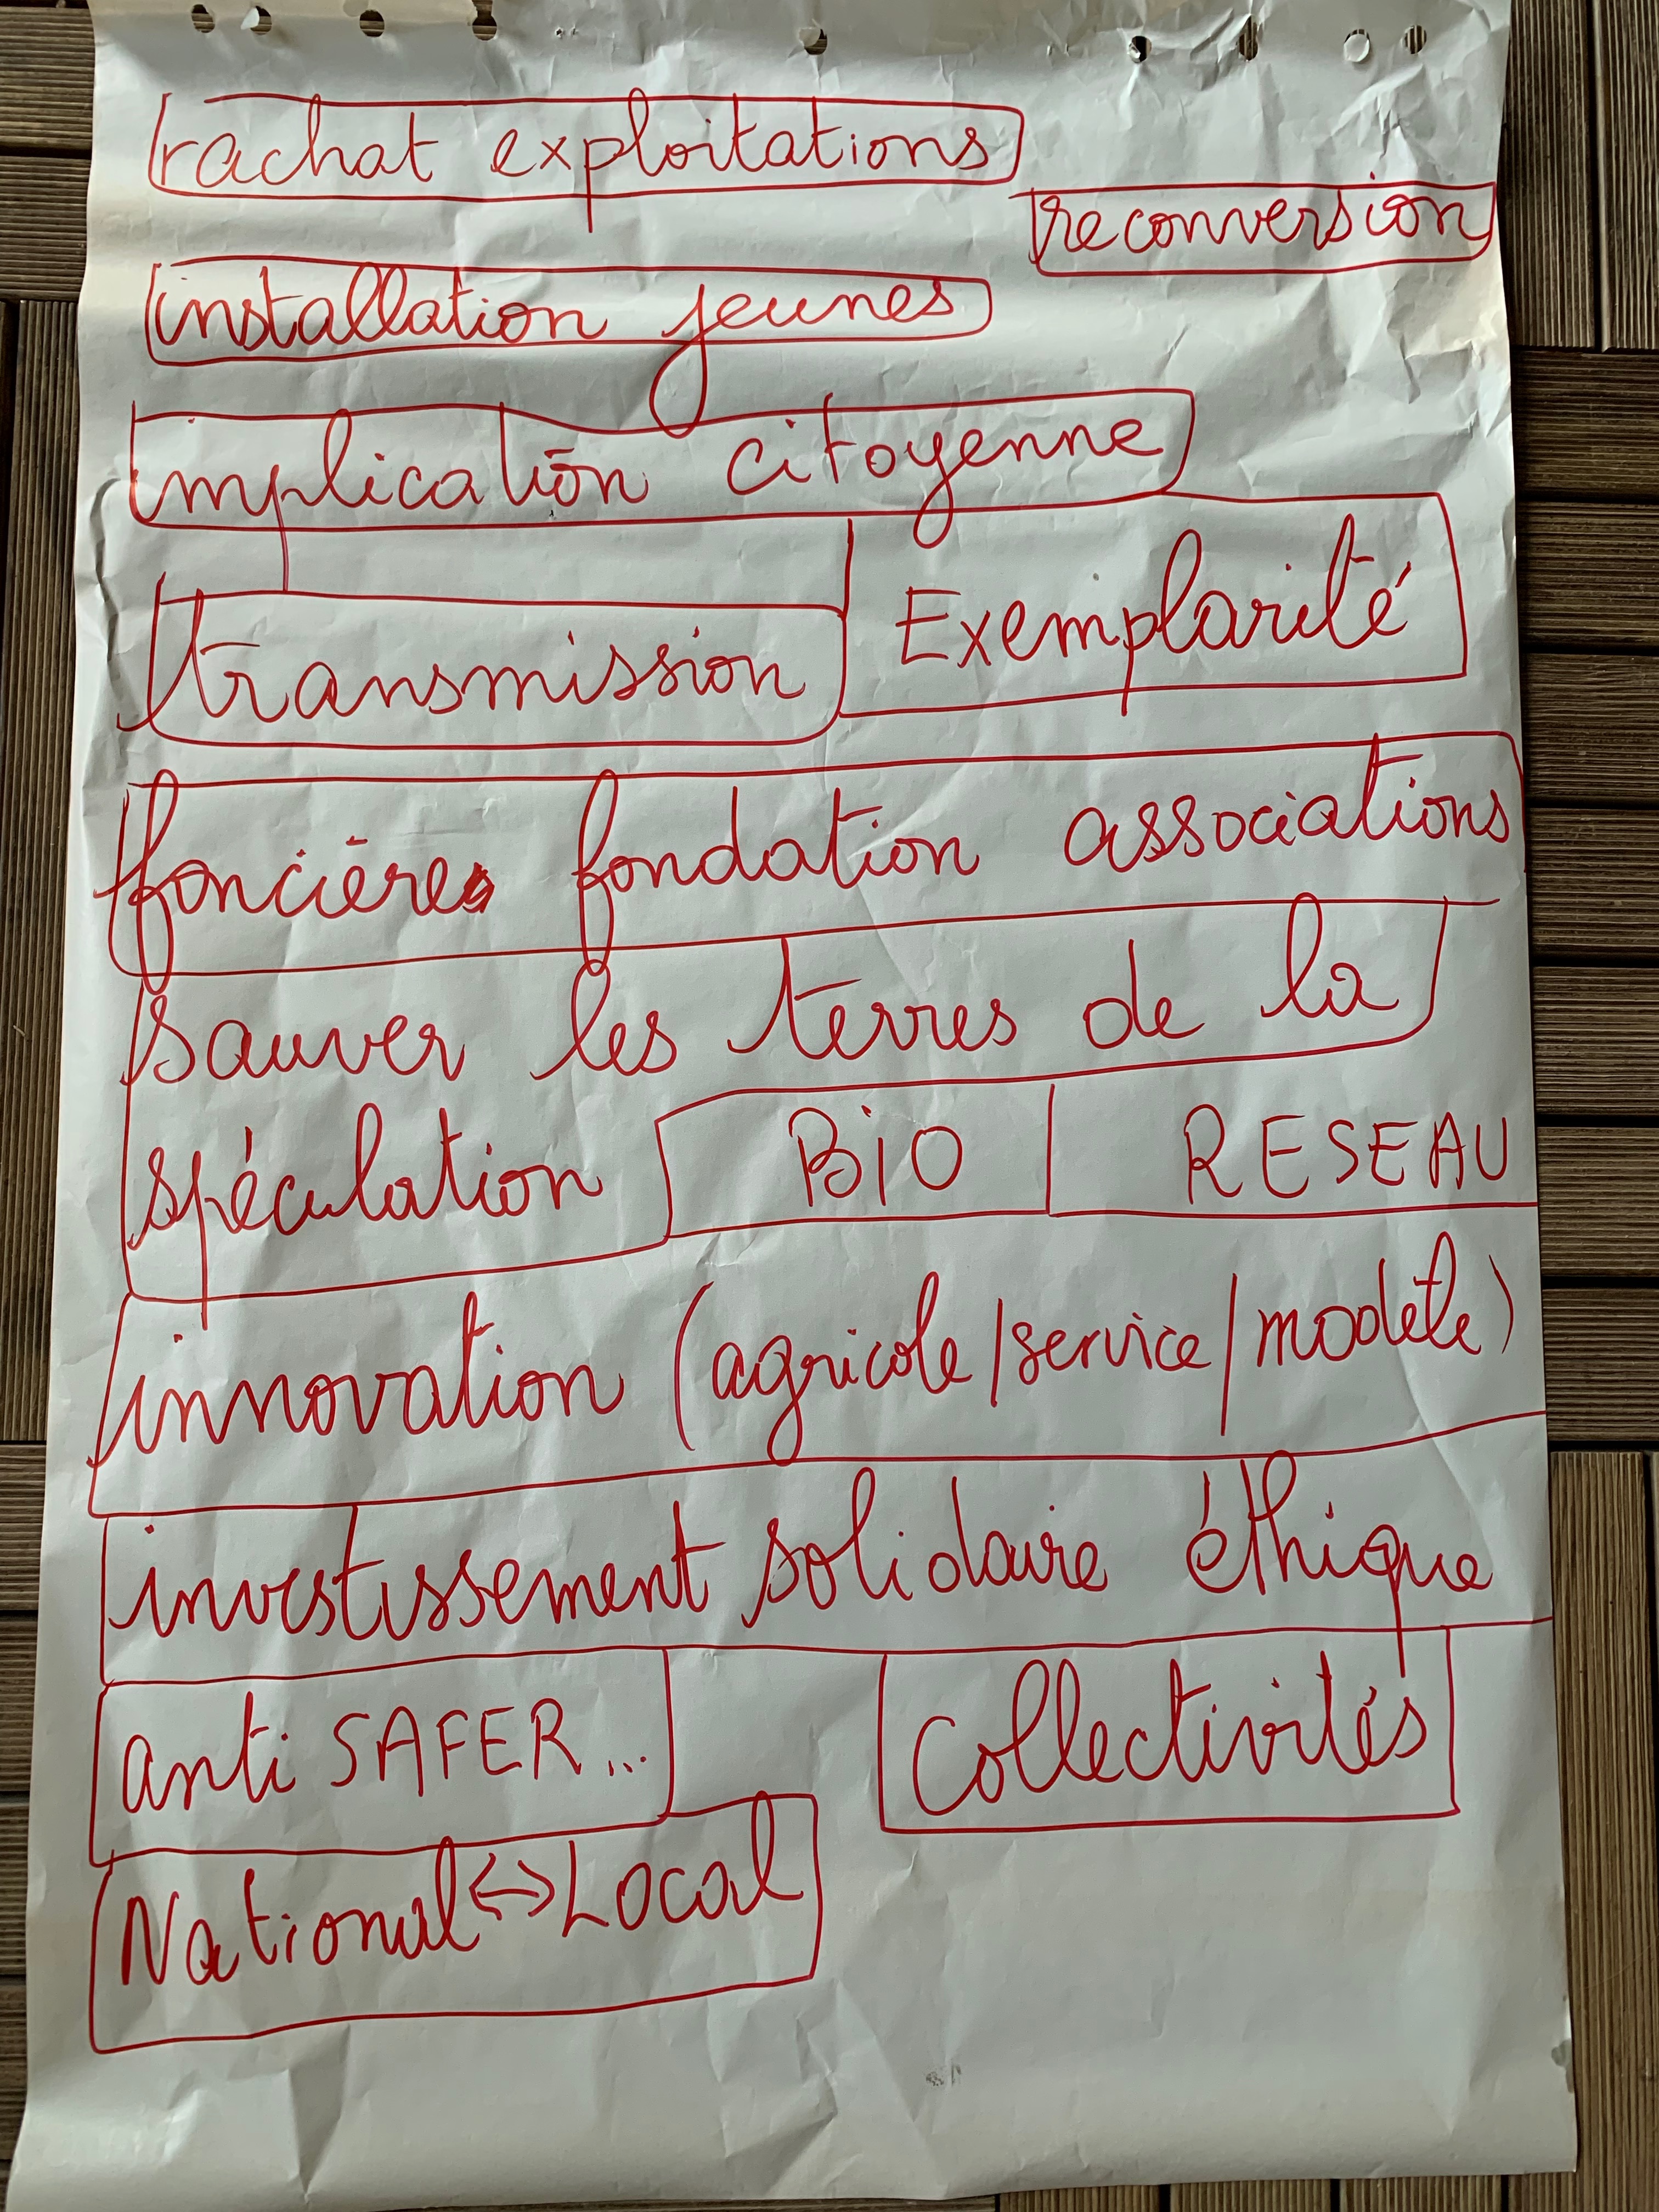 rachat exploitations
reconversion
installation jeunes
implication citoyenne
transmission Exemplarité
foncière fondation associations
sauver les terres de la
spéculation BiO RESEAU
innovation (agricole/service/modèle)
investissement solidaire éthique
anti SAFER... Collectivités
National <-> Local